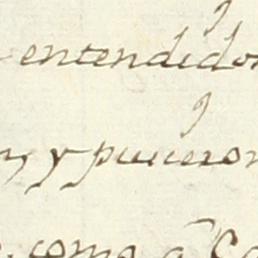 entendido
y pusieron
como a